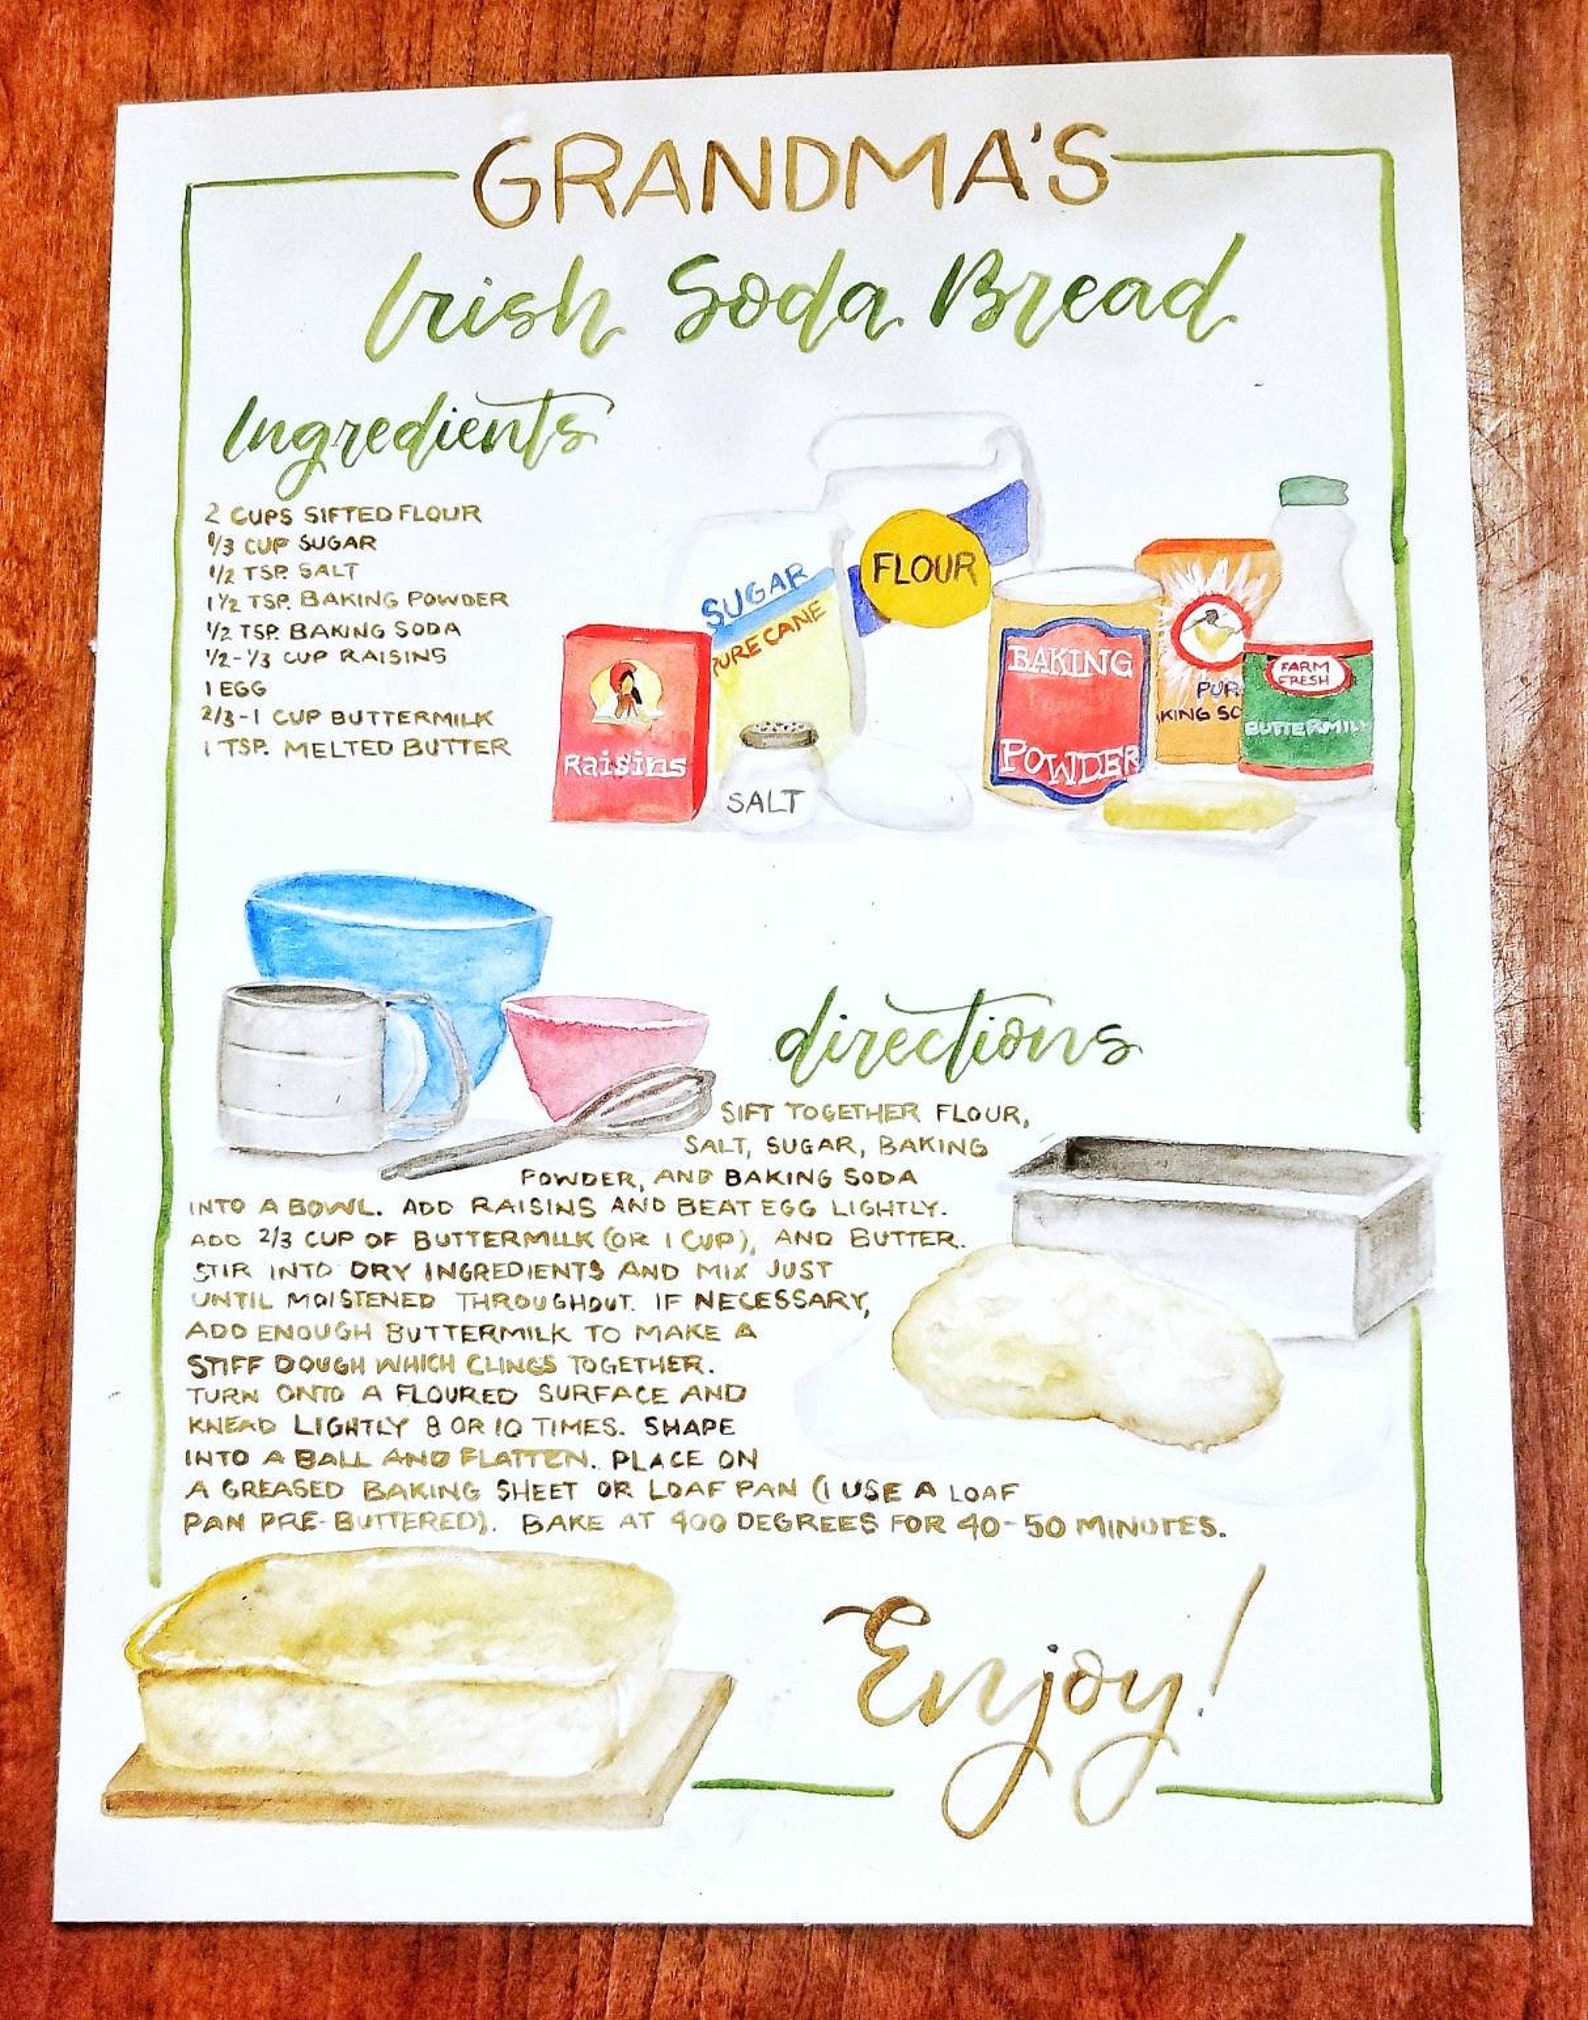 GRANDMA'S
Irish Soda Bread
Ingredients
2 CUPS SIFTED FLOUR
1/3 CUP SUGAR
1/2 TSP. SALT
1 1/2 TSP. BAKING POWDER
1/2 TSP. BAKING SODA
1/2-1/3 CUP RAISINS
1 EGG
2/3-1 CUP BUTTERMILK
1 TSP. MELTED BUTTER
FLOUR
SUGAR
PURE CANE
Raisins
SALT
BAKING
POWDER
PUR
KING SO
FARM
FRESH
BUTTERMIL
directions
SIFT TOGETHER FLOUR,
SALT, SUGAR, BAKING
POWDER, AND BAKING SODA
INTO A BOWL. ADD RAISINS AND BEAT EGG LIGHTLY.
ADD 2/3 CUP OF BUTTERMILK (OR 1 CUP), AND BUTTER.
STIR INTO DRY INGREDIENTS AND MIX JUST
UNTIL MOISTENED THROUGHOUT. IF NECESSARY,
ADD ENOUGH BUTTERMILK TO MAKE A
STIFF DOUGH WHICH CLINGS TOGETHER.
TURN ONTO A FLOURED SURFACE AND
KNEAD LIGHTLY 8 OR 10 TIMES. SHAPE
INTO A BALL AND FLATTEN. PLACE ON
A GREASED BAKING SHEET OR LOAF PAN (I USE A LOAF
PAN PRE-BUTTERED). BAKE AT 400 DEGREES FOR 40-50 MINUTES.
Enjoy!